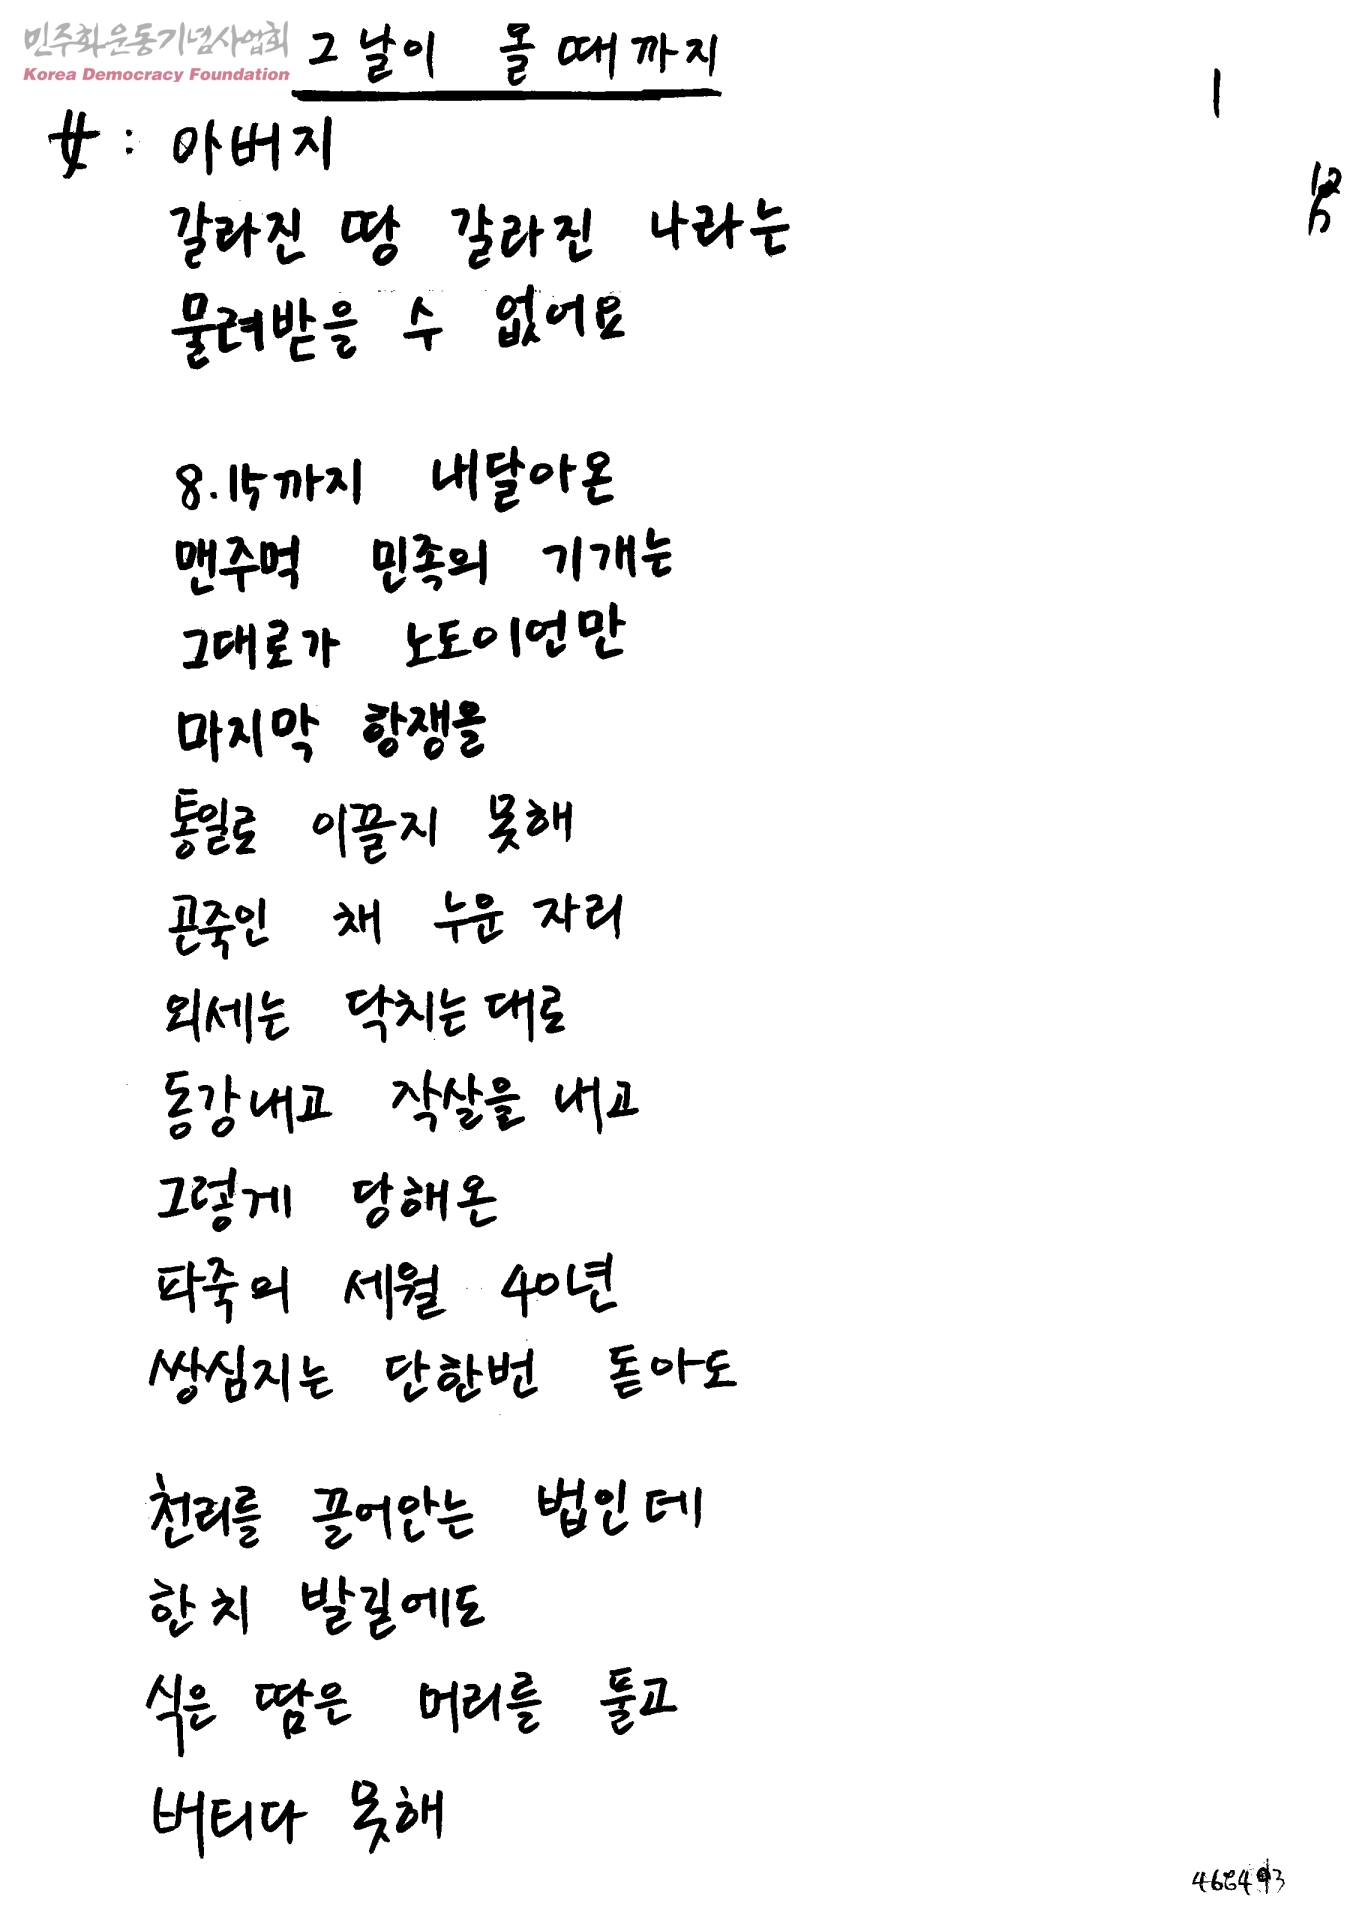 민주화운동기념사업회
Korea Democracy Foundation
그날이 올 때까지
1
女 : 아버지
갈라진 땅 갈라진 나라는
물려받을 수 없어요
8.15까지 내달아온
맨주먹 민족의 기개는
그대로가 노도이언만
마지막 항쟁을
통일로 이끌지 못해
곤죽인 채 누운 자리
외세는 닥치는대로
동강내고 작살을 내고
그렇게 당해온
파죽의 세월 40년
쌍심지는 단한번 돋아도
천리를 끌어안는 법인데
한치 발길에도
식은 땀은 머리를 풀고
버티다 못해